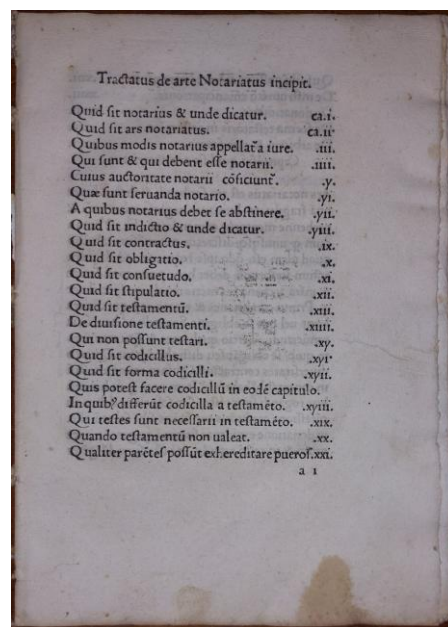 Tractatus de arte Notariatus incipit.
Quid sit notarius & unde dicatur. ca.i.
Quid sit ars notariatus. ca.ii.
Quibus modis notarius appellat᷑ a iure. .iii.
Qui sunt & qui debent esse notarii. .iiii.
Cuius auctoritate notarii cōficiunt᷑. .v.
Quæ sunt seruanda notario. .vi.
A quibus notarius debet se abstinere. .vii.
Quid sit indictio & unde dicatur. .viii.
Quid sit contractus. .ix.
Quid sit obligatio. .x.
Quid sit consuetudo. .xi.
Quid sit stipulatio. .xii.
Quid sit testamentū. .xiii.
De diuisione testamenti. .xiiii.
Qui non possunt testari. .xv.
Quid sit codicillus. .xvi.
Quid sit forma codicilli. .xvii.
Quis potest facere codicillū in eodē capitulo.
In quibꝰ differūt codicilla a testamēto. .xviii.
Qui testes sunt necessarii in testamēto. .xix.
Quando testamentū non ualeat. .xx.
Qualiter parētes possūt exhereditare pueros. xxi.
a 1